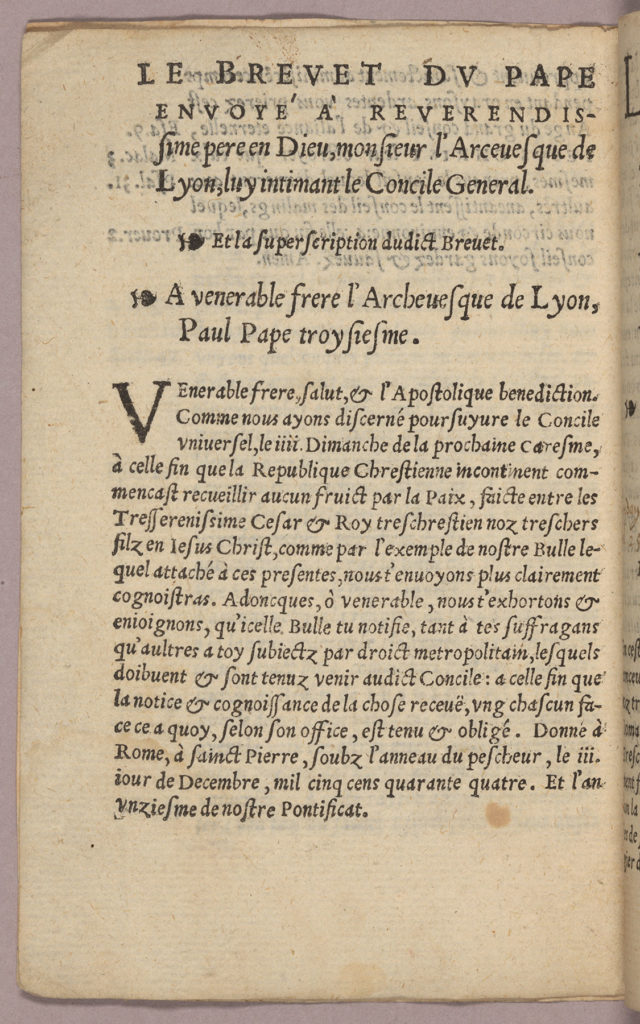 LE BREVET DV PAPE
ENVOYÉ A REVERENDIS-
ſime pere en Dieu, monſieur l'Arceueſque de
Lyon, luy intimant le Concile General.
Et la ſuperſcription dudict Breuet.
A venerable frere l'Archeueſque de Lyon,
Paul Pape troyſieſme.
VEnerable frere, ſalut, & l'Apoſtolique benediction.
Comme nous ayons diſcerné pourſuyure le Concile
vniuerſel, le iiii. Dimanche de la prochaine Careſme,
à celle fin que la Republique Chreſtienne incontinent com-
mencaſt recueillir aucun fruict par la Paix, faicte entre les
Treſſereniſſime Ceſar & Roy treſchreſtien noz treſchers
filz en Ieſus Chriſt, comme par l'exemple de noſtre Bulle le-
quel attaché à ces preſentes, nous t'enuoyons plus clairement
cognoiſtras. Adoncques, ò venerable, nous t'exhortons &
enioignons, qu'icelle Bulle tu notifie, tant à tes ſuffragans
qu'aultres a toy ſubiectz par droict metropolitain, leſquels
doibuent & ſont tenuz venir audict Concile: a celle fin que
la notice & cognoiſſance de la choſe receuë, vng chaſcun fa-
ce ce a quoy, ſelon ſon office, eſt tenu & obligé. Donné à
Rome, à ſainct Pierre, ſoubz l'anneau du peſcheur, le iii.
iour de Decembre, mil cinq cens quarante quatre. Et l'an
vnzieſme de noſtre Pontificat.